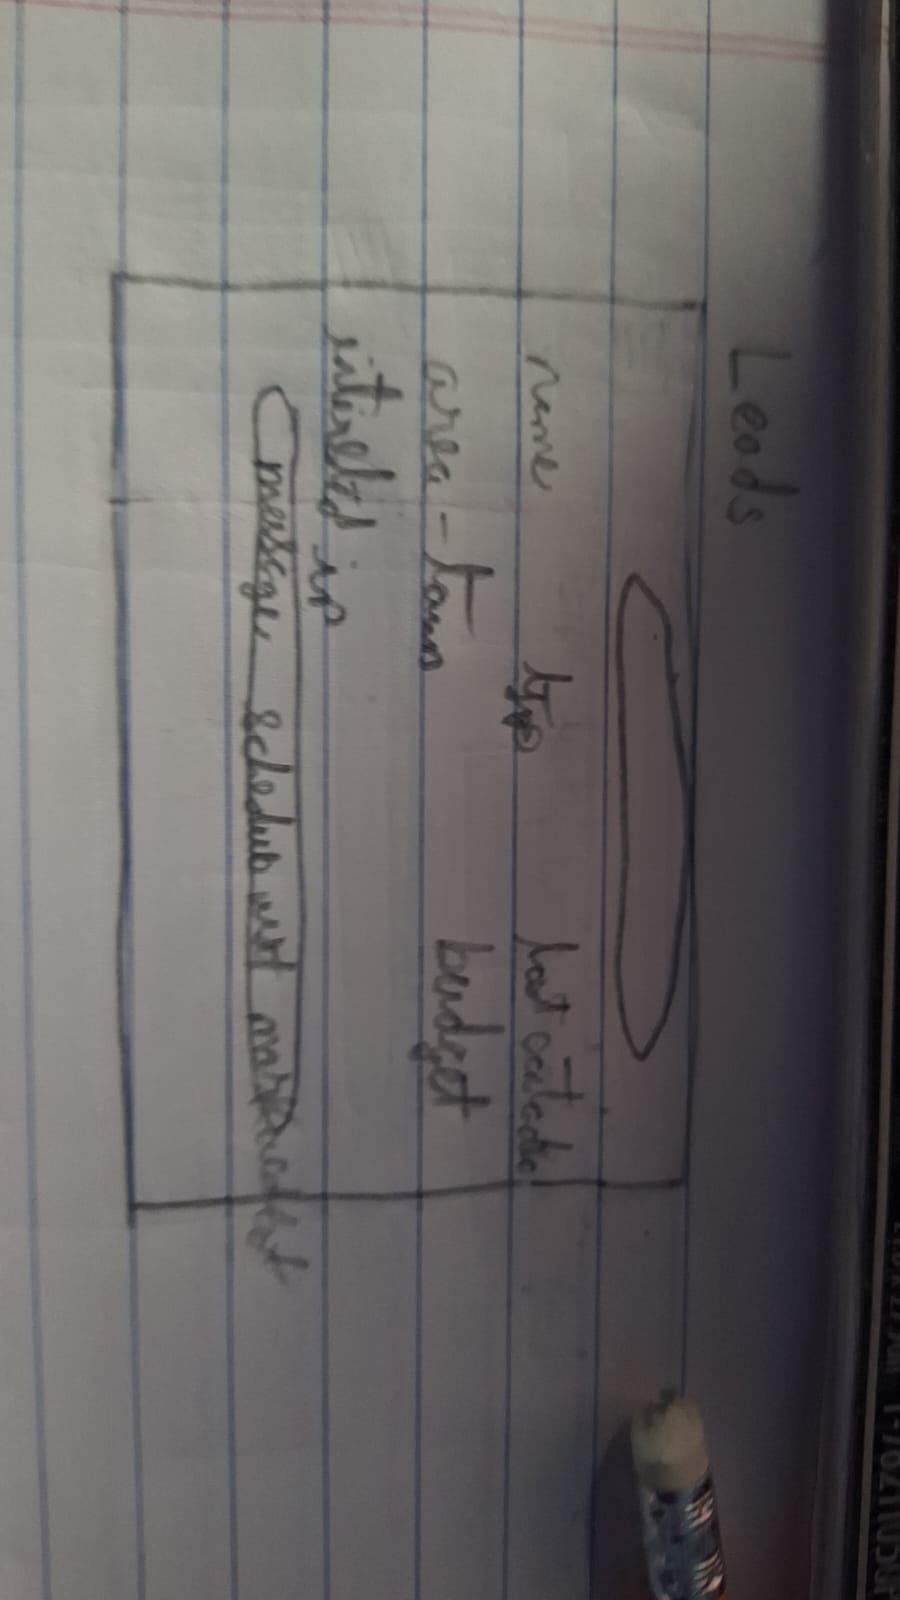 Leads
name typ last contacted
area - town budget
interested in
message schedule visit mark